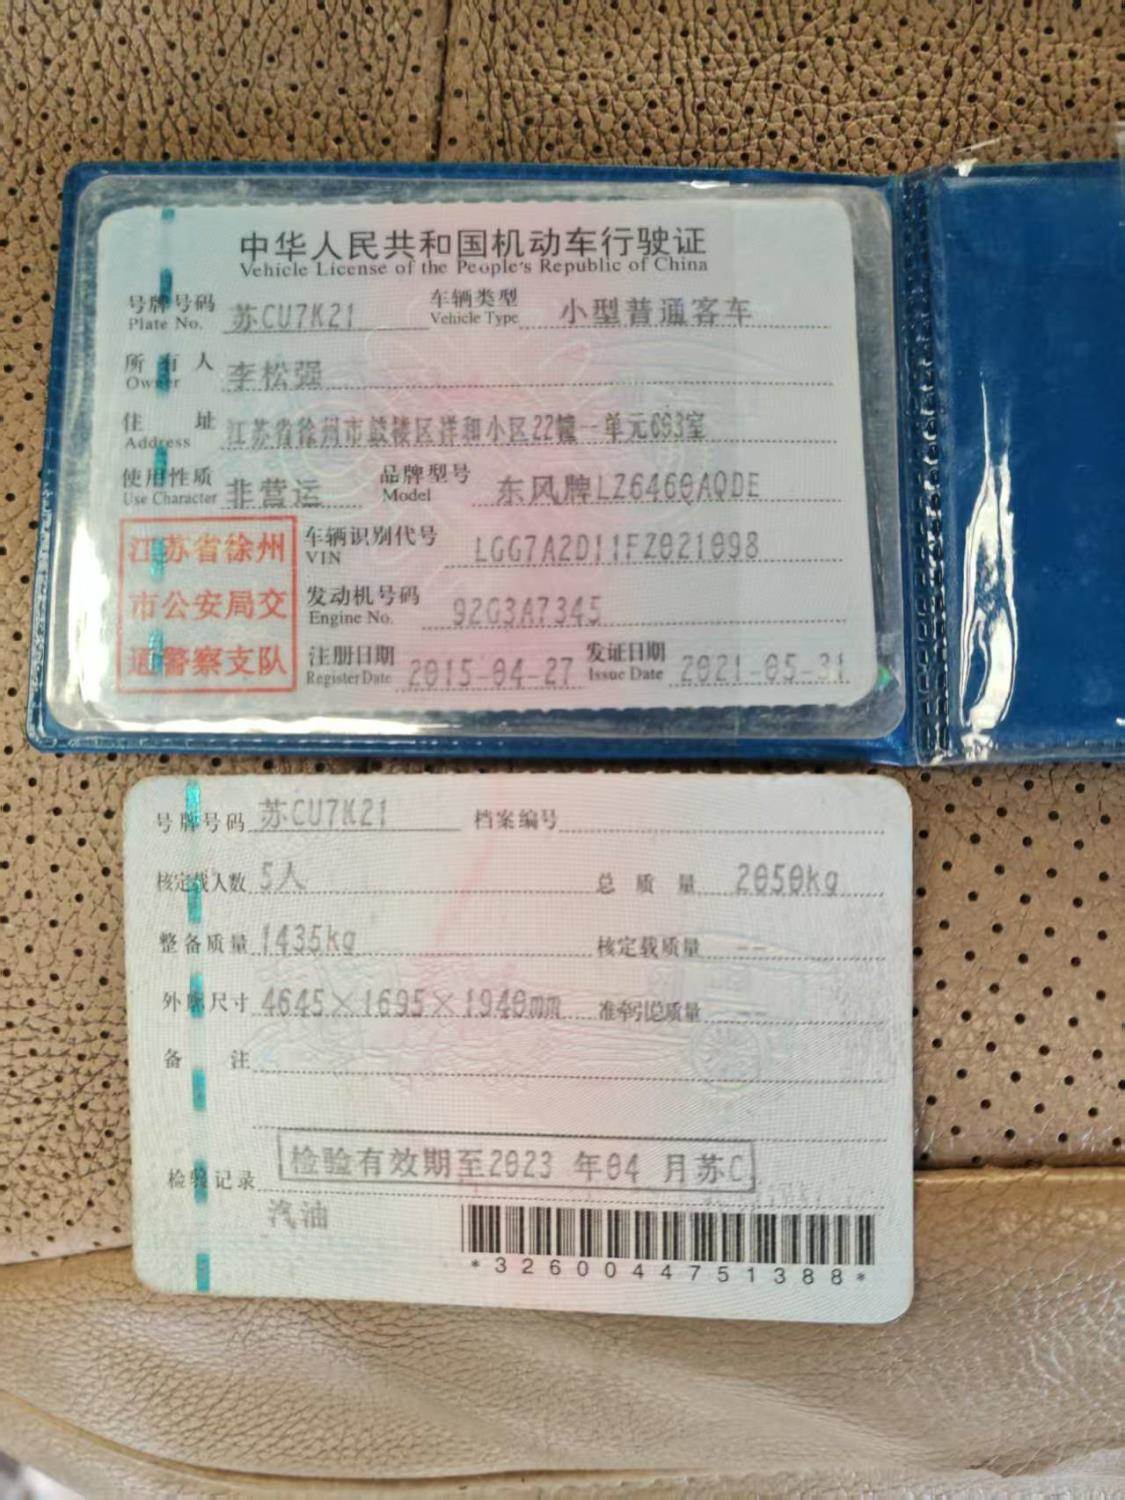 中华人民共和国机动车行驶证
Vehicle License of the People's Republic of China
号牌号码 苏CU7K21 车辆类型 小型普通客车
Plate No. Vehicle Type
所有人 李松强
Owner
住址 江苏省徐州市鼓楼区祥和小区22幢一单元603室
Address
使用性质 非营运 品牌型号 东风牌LZ6460AQDE
Use Character Model
江苏省徐州
市公安局交
通警察支队
车辆识别代号 LGG7A2D11FZ021098
VIN
发动机号码 92G3A7345
Engine No.
注册日期 2015-04-27 发证日期 2021-05-31
Register Date Issue Date
号牌号码 苏CU7K21 档案编号
核定载人数 5人 总质量 2050kg
整备质量 1435kg 核定载质量 --
外廓尺寸 4645×1695×1940mm 准牵引总质量
备注
检验记录 检验有效期至2023年04月苏C
汽油
*3260044751388*